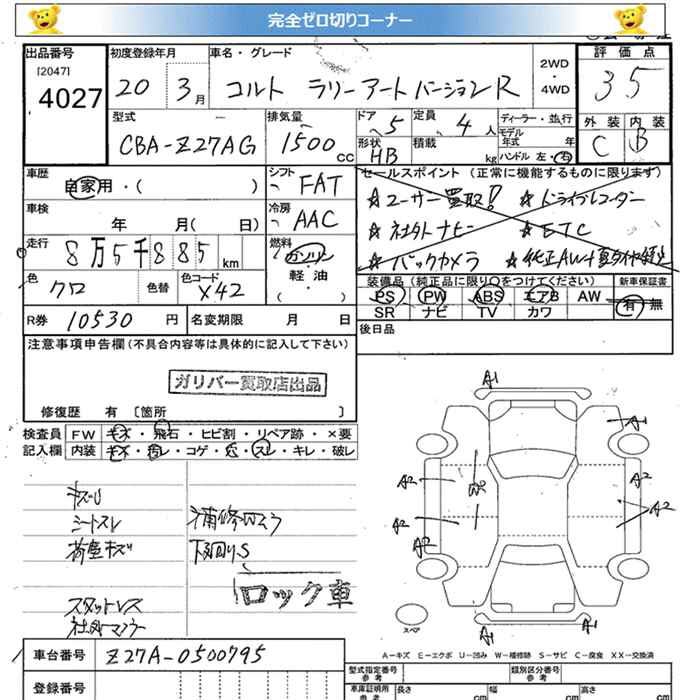 完全ゼロ切りコーナー
出品番号 初度登録年月 車名・グレード 2WD・4WD 評価点
[2047]
4027 20 3月 コルト ラリーアートバージョンR 3.5
型式 排気量 ドア 定員 ディーラー・並行 外装 内装
CBA-Z27AG 1500cc 5 4人 モデル年式 年 C B
形状 HB 積載 kg ハンドル 左・右
車歴 自家用・( ) シフト FAT セールスポイント (正常に機能するものに限ります)
☆ユーザー買取! ☆ドライブレコーダー
車検 年 月( 日) 冷房 AAC ☆社外ナビ ☆ETC
走行 8万5千885km 燃料 ガソリン 軽油 ( ・ ) ☆バックカメラ ☆純正AW+
色 クロ 色替 色コード X42 装備品 (純正品に限り○をつけてください) 新車保証書
PS PW ABS エアB AW 有・無
SR ナビ TV カワ
R券 10530円 名変期限 月 日 後日品
注意事項申告欄 (不具合内容等は具体的に記入して下さい)
ガリバー買取店出品
修復歴 有 〔箇所 〕
検査員 FW キズ・飛石・ヒビ割・リペア跡・×要
記入欄 内装 キズ・汚レ・コゲ・穴・スレ・キレ・破レ
A1
A1
A2 A2
A2 A2
A2
キズU
シートスレ 補修切スウ
荷室キズ 下廻りS
ロック車
スタットレス
社外マフラー
スペア
A1 A1
A-キズ E-エクボ U-凹み W-補修跡 S-サビ C-腐食 XX-交換済
車台番号 Z27A-0500795 型式指定番号 参考 類別区分番号 参考
登録番号 車庫証明用 参考 長さ cm 幅 cm 高さ cm